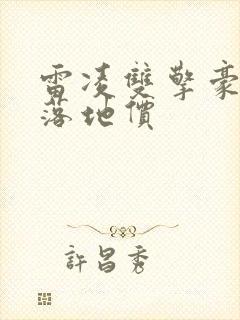 雷凌雙擎豪
落地價
許昌秀